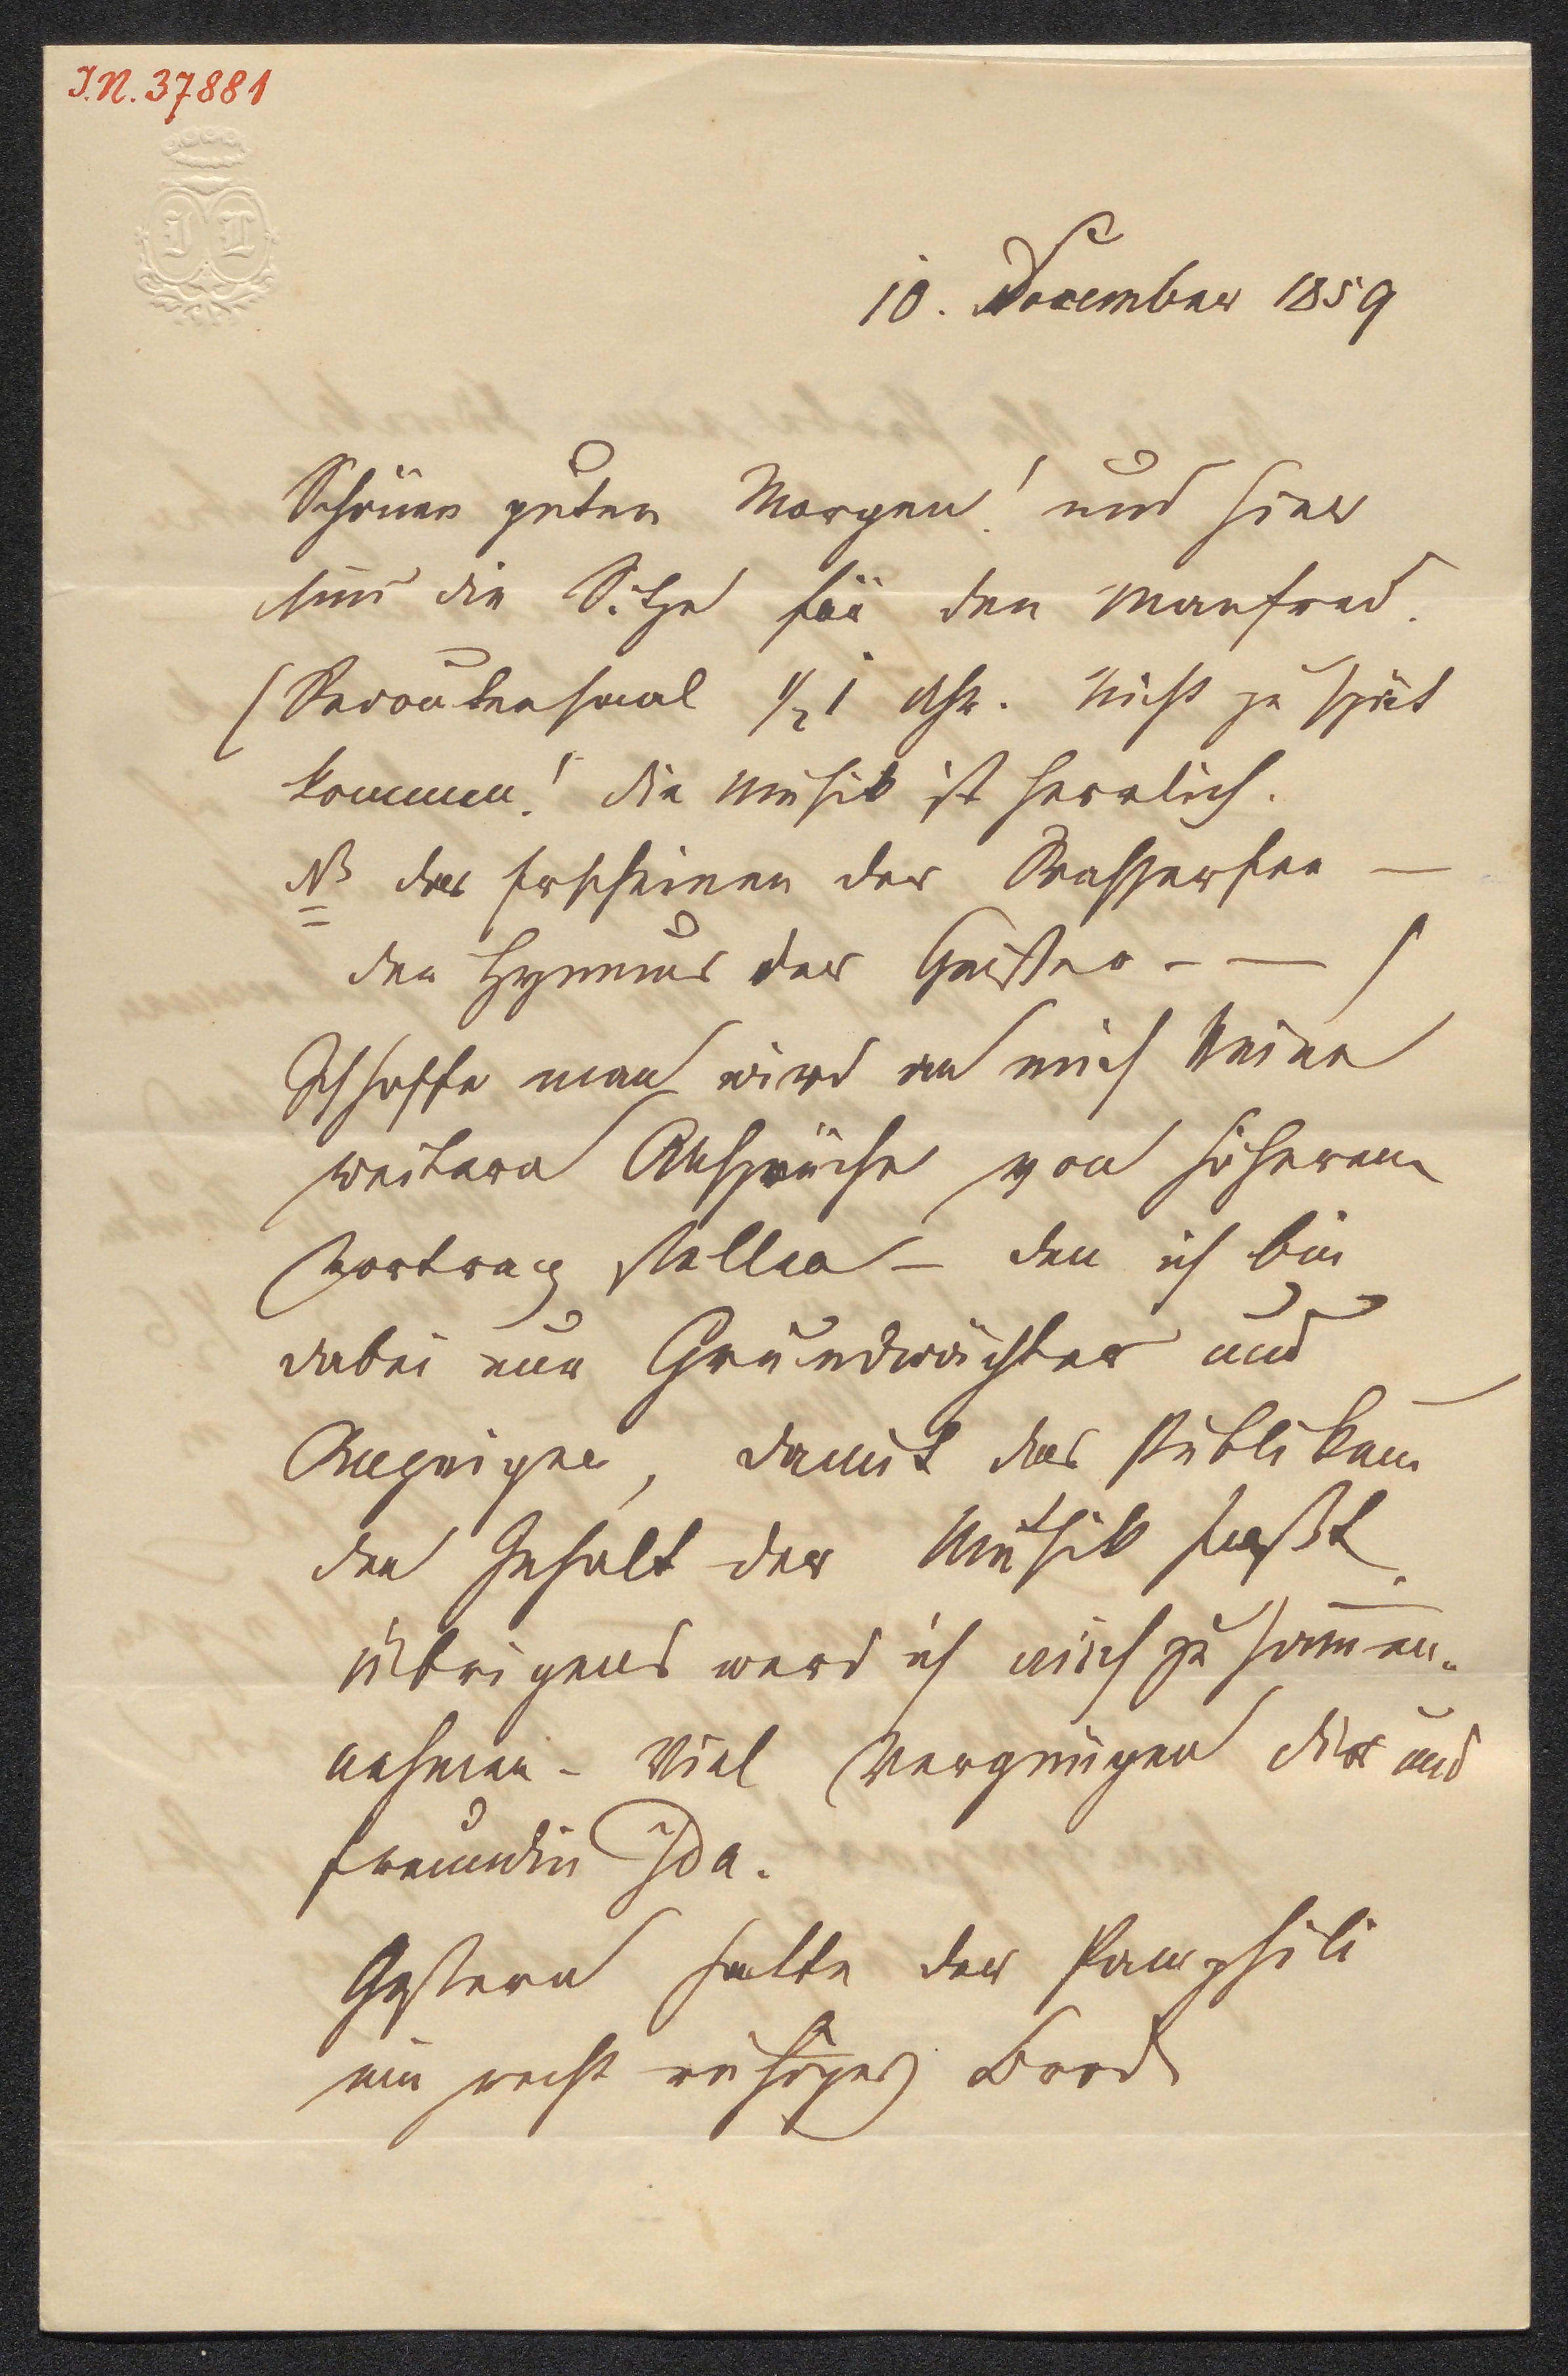 I.N. 37881
I L
10. December 1859
Schönen guten Morgen! und hier
sind die Sitze für den Manfred.
(Redoutensaal ½1 Uhr. Nicht zu spät
kommen! die Musik ist herrlich.
NB das Erscheinen der Wasserfee —
der Hymnus der Geister - — )
Ich hoffe man wird an mich keine
weitern Ansprüche von höherem
Vortrag stellen – den ich bin
dabei nur Grundwächter und
Anzeiger, damit das Publikum
den Gehalt der Musik faßt.
übrigens werd ich mich zusammen-
nehmen – Viel Vergnügen dir und
freundin Ida.
Gestern hatte der Pamphili
ein recht ruhiges Bord